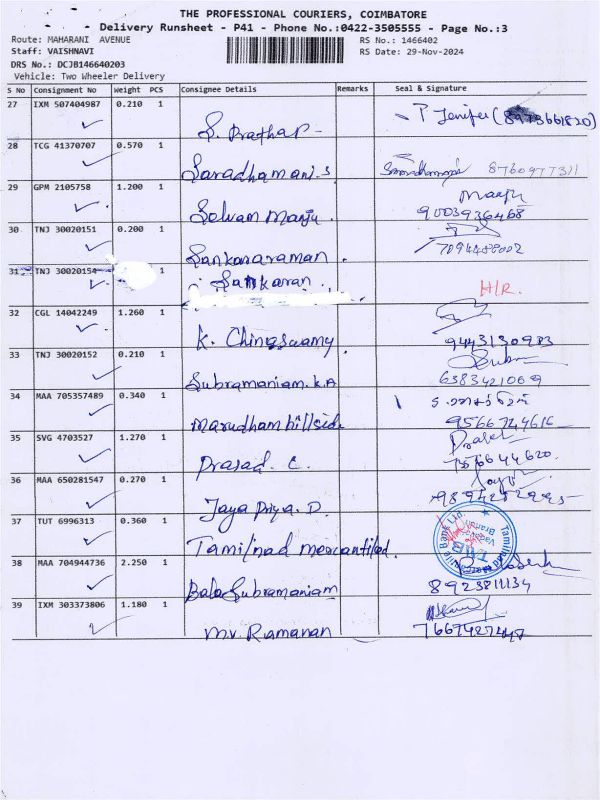 THE PROFESSIONAL COURIERS, COIMBATORE
Delivery Runsheet - P41 - Phone No.:0422-3505555 - Page No.:3
Route: MAHARANI AVENUE
RS No.: 1466402
Staff: VAISHNAVI
RS Date: 29-Nov-2024
DRS No.: DCJB146640203
Vehicle: Two Wheeler Delivery
S No Consignment No Weight PCS Consignee Details Remarks Seal & Signature
27 IXM 507404987 0.210 1 S. Prathap P Jenifer (8973661820)
28 TCG 41370707 0.570 1 Saradhamani.S 8760977311
29 GPM 2105758 1.200 1 Selvam Manju. Manju
9003936468
30 TNJ 30020151 0.200 1 Sankararaman.
7094488002
31 TNJ 30020154 1 Sankaran H/R.
32 CGL 14042249 1.260 1 K. Chinaswamy
9443130983
33 TNJ 30020152 0.210 1 Subramaniam.K.A
6383421069
34 MAA 705357489 0.340 1 Marudham hillside
9566744616
35 SVG 4703527 1.270 1 Prasad. C.
7376644620
36 MAA 650281547 0.270 1 Jaya Priya. D.
37 TUT 6996313 0.360 1 Tamilnad mercantiled.
Tamilnad Mercantile Bank Ltd.
TMB
38 MAA 704944736 2.250 1 Bala Subramaniam
8923811134
39 IXM 303373806 1.180 1 M.V. Ramanan
7667427447